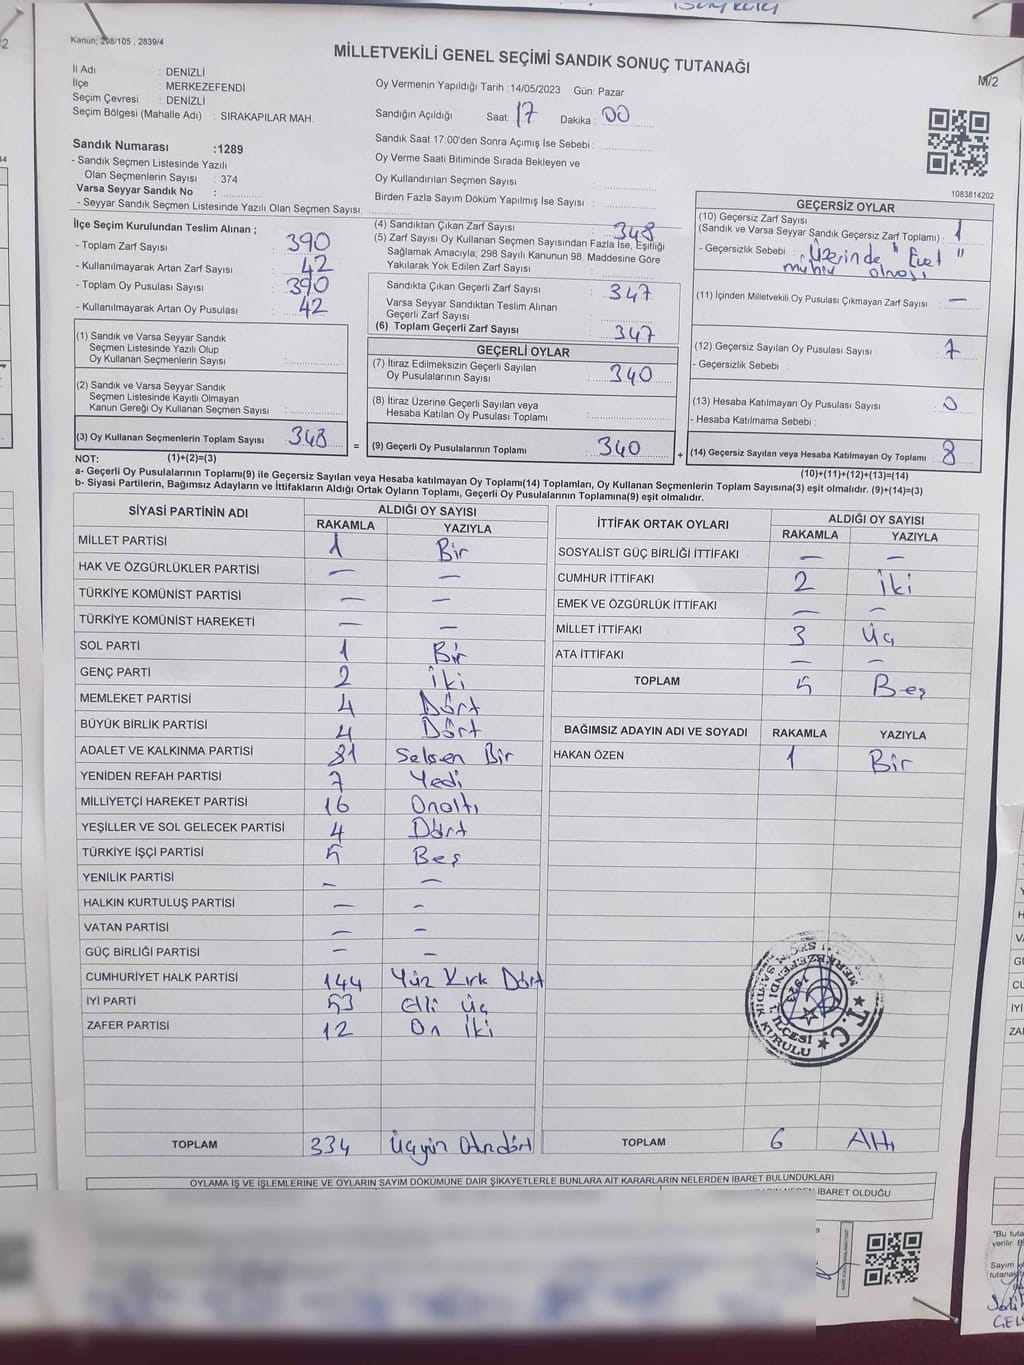 Kanun; 298/105 , 2839/4
MİLLETVEKİLİ GENEL SEÇİMİ SANDIK SONUÇ TUTANAĞI
M/2
İl Adı : DENİZLİ
İlçe : MERKEZEFENDİ
Seçim Çevresi : DENİZLİ
Seçim Bölgesi (Mahalle Adı) : SIRAKAPILAR MAH.
Sandık Numarası :1289
- Sandık Seçmen Listesinde Yazılı
Olan Seçmenlerin Sayısı : 374
Varsa Seyyar Sandık No :
- Seyyar Sandık Seçmen Listesinde Yazılı Olan Seçmen Sayısı:
Oy Vermenin Yapıldığı Tarih :14/05/2023 Gün: Pazar
Sandığın Açıldığı Saat: 17 Dakika : 00
Sandık Saat 17:00'den Sonra Açımış İse Sebebi :
Oy Verme Saati Bitiminde Sırada Bekleyen ve
Oy Kullandırılan Seçmen Sayısı :
Birden Fazla Sayım Döküm Yapılmış İse Sayısı :
1083814202
İlçe Seçim Kurulundan Teslim Alınan ;
- Toplam Zarf Sayısı : 390
- Kullanılmayarak Artan Zarf Sayısı : 42
- Toplam Oy Pusulası Sayısı : 390
- Kullanılmayarak Artan Oy Pusulası : 42
(1) Sandık ve Varsa Seyyar Sandık
Seçmen Listesinde Yazılı Olup
Oy Kullanan Seçmenlerin Sayısı :
(2) Sandık ve Varsa Seyyar Sandık
Seçmen Listesinde Kayıtlı Olmayan
Kanun Gereği Oy Kullanan Seçmen Sayısı :
(3) Oy Kullanan Seçmenlerin Toplam Sayısı : 348
(1)+(2)=(3)
(4) Sandıktan Çıkan Zarf Sayısı : 348
(5) Zarf Sayısı Oy Kullanan Seçmen Sayısından Fazla İse, Eşitliği
Sağlamak Amacıyla; 298 Sayılı Kanunun 98. Maddesine Göre
Yakılarak Yok Edilen Zarf Sayısı :
Sandıkta Çıkan Geçerli Zarf Sayısı : 347
Varsa Seyyar Sandıktan Teslim Alınan
Geçerli Zarf Sayısı :
(6) Toplam Geçerli Zarf Sayısı : 347
GEÇERLİ OYLAR
(7) İtiraz Edilmeksizin Geçerli Sayılan
Oy Pusulalarının Sayısı : 340
(8) İtiraz Üzerine Geçerli Sayılan veya
Hesaba Katılan Oy Pusulası Toplamı :
= (9) Geçerli Oy Pusulalarının Toplamı : 340
GEÇERSİZ OYLAR
(10) Geçersiz Zarf Sayısı
(Sandık ve Varsa Seyyar Sandık Geçersiz Zarf Toplamı) : 1
- Geçersizlik Sebebi : Üzerinde "Evet"
mührü olması
(11) İçinden Milletvekili Oy Pusulası Çıkmayan Zarf Sayısı : —
(12) Geçersiz Sayılan Oy Pusulası Sayısı : 7
- Geçersizlik Sebebi :
(13) Hesaba Katılmayan Oy Pusulası Sayısı : 0
- Hesaba Katılmama Sebebi :
+ (14) Geçersiz Sayılan veya Hesaba Katılmayan Oy Toplamı : 8
(10)+(11)+(12)+(13)=(14)
NOT:
a- Geçerli Oy Pusulalarının Toplamı(9) ile Geçersiz Sayılan veya Hesaba katılmayan Oy Toplamı(14) Toplamları, Oy Kullanan Seçmenlerin Toplam Sayısına(3) eşit olmalıdır. (9)+(14)=(3)
b- Siyasi Partilerin, Bağımsız Adayların ve İttifakların Aldığı Ortak Oyların Toplamı, Geçerli Oy Pusulalarının Toplamına(9) eşit olmalıdır.
SİYASİ PARTİNİN ADI ALDIĞI OY SAYISI
RAKAMLA YAZIYLA
MİLLET PARTİSİ 1 Bir
HAK VE ÖZGÜRLÜKLER PARTİSİ — —
TÜRKİYE KOMÜNİST PARTİSİ — —
TÜRKİYE KOMÜNİST HAREKETİ — —
SOL PARTİ 1 Bir
GENÇ PARTİ 2 İki
MEMLEKET PARTİSİ 4 Dört
BÜYÜK BİRLİK PARTİSİ 4 Dört
ADALET VE KALKINMA PARTİSİ 81 Seksen Bir
YENİDEN REFAH PARTİSİ 7 Yedi
MİLLİYETÇİ HAREKET PARTİSİ 16 Onaltı
YEŞİLLER VE SOL GELECEK PARTİSİ 4 Dört
TÜRKİYE İŞÇİ PARTİSİ 5 Beş
YENİLİK PARTİSİ — —
HALKIN KURTULUŞ PARTİSİ — —
VATAN PARTİSİ — —
GÜÇ BİRLİĞİ PARTİSİ — —
CUMHURİYET HALK PARTİSİ 144 Yüz Kırk Dört
İYİ PARTİ 53 Elli Üç
ZAFER PARTİSİ 12 On İki
TOPLAM 334
İTTİFAK ORTAK OYLARI ALDIĞI OY SAYISI
RAKAMLA YAZIYLA
SOSYALİST GÜÇ BİRLİĞİ İTTİFAKI — —
CUMHUR İTTİFAKI 2 İki
EMEK VE ÖZGÜRLÜK İTTİFAKI — —
MİLLET İTTİFAKI 3 Üç
ATA İTTİFAKI — —
TOPLAM 5 Beş
BAĞIMSIZ ADAYIN ADI VE SOYADI RAKAMLA YAZIYLA
HAKAN ÖZEN 1 Bir
T.C.
SANDIK KURULU
TOPLAM 6 Altı
OYLAMA İŞ VE İŞLEMLERİNE VE OYLARIN SAYIM DÖKÜMÜNE DAİR ŞİKAYETLERLE BUNLARA AİT KARARLARIN NELERDEN İBARET BULUNDUKLARI
İBARET OLDUĞU